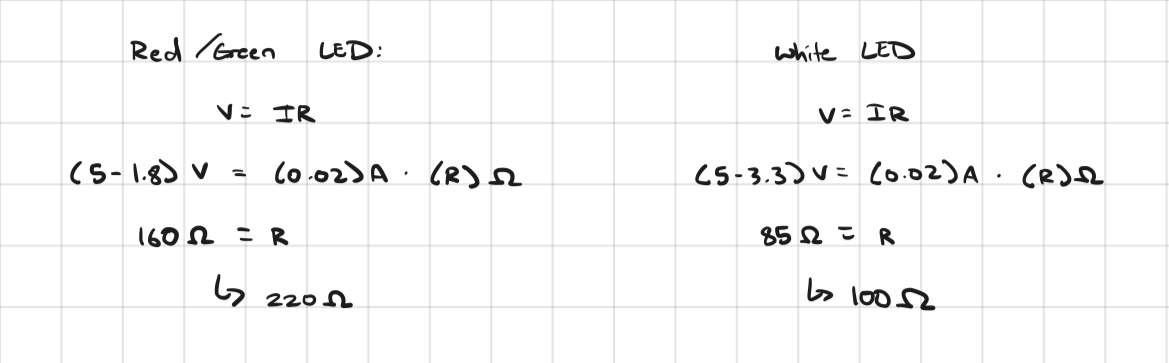 Red/Green LED:
V = IR
(5-1.8) V = (0.02)A · (R) Ω
160 Ω = R
↳ 220 Ω
White LED
V = IR
(5-3.3) V = (0.02)A · (R) Ω
85 Ω = R
↳ 100 Ω